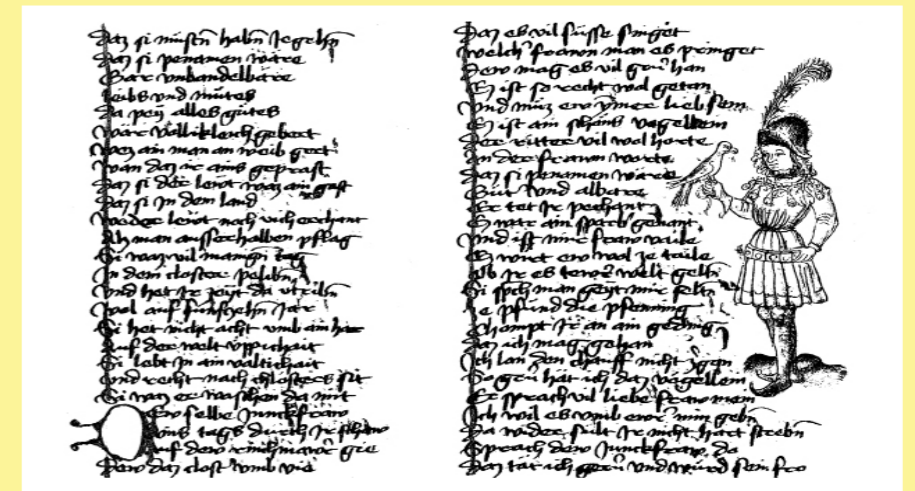 Daz si müstn̄ habn̄ Jegehn̄
Daz si penamen wäre
Gar vnwandelbäre
leibs vnd mütes
Da peÿ alles gütes
wär volliklich gebert
wez ain man an weib gert
wan daz ir ains geprast
Daz si der lewt waz ain gast
Daz si Jn dem land
weder lewt noch vich erchant
Als man ausserhalben pflag
Si waz vil mangn̄ tag
Jn dem closter pelibn̄
vnd het Jr zeÿt da vtribn̄
wol auf fünfzehn̄ Jar
Si het nicht acht vmb ain har
Auf der welt vppichait
Si lebt Jn ain valtichait
vnd recht nach chlosters sit
Si waz er waschen da mit
Dew selbe Junckfraw
ains tags durch Jr schaw
auf dew rinckmawr gie
Dew daz clost vmb vie
Daz es vil süsse singet
welch frawn man es pringet
Dew mag es vil gern̄ han
Ez ist so recht wol getan
vnd müz ew ÿmer lieb sein
Ez ist ain schöns vogellein
Der ritter vil wol horte
An der frawn worte
Daz si penamen wäre
Güt vnd albäre
Er tet Jr pechant
Ez wär ain sparb genant
vnd ist mir fraw vaile
Ez wirt ew wol ze taile
Ob Jr es tewr welt geltn̄
Si spch man geÿt mir seltn̄
Ze pfünd die pfenning
Chompt Jr an ain geding
Daz ich mag gehan
Ich lan den chauff nicht zgan
So gern̄ hät ich daz vögellein
Er sprach vil liebe fraw mein
Ich wil es vmb ewr min gebn̄
Da wider sült Jr nicht hart strebn̄
Sprach dew Junckfraw do
Daz tär ich gern̄ vnd würd sein fro